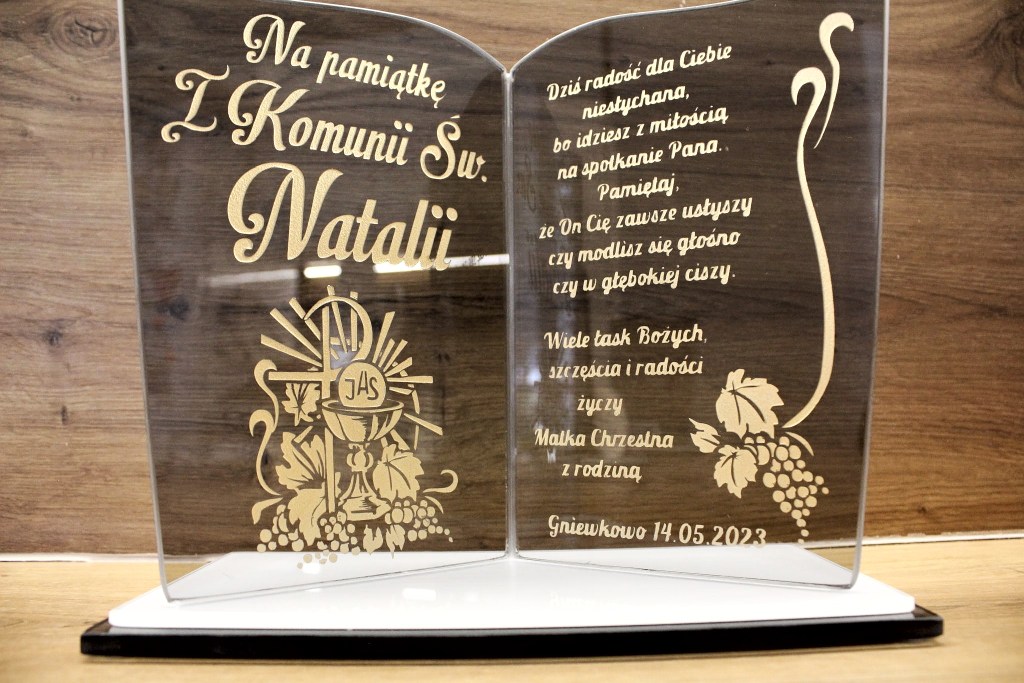 Na pamiątkę
I Komunii Św.
Natalii
JHS
Dziś radość dla Ciebie
niesłychana,
bo idziesz z miłością
na spotkanie Pana.
Pamiętaj,
że On Cię zawsze usłyszy
czy modlisz się głośno
czy w głębokiej ciszy.
Wiele łask Bożych,
szczęścia i radości
życzy
Matka Chrzestna
z rodziną
Gniewkowo 14.05.2023